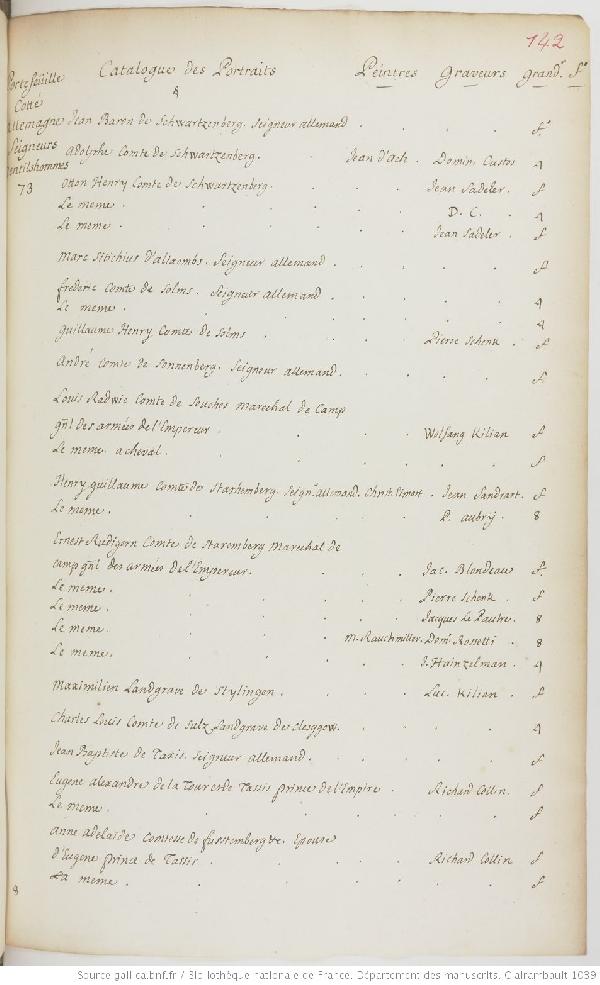 142
Portefeüille Catalogue des Portraits Peintres Graveurs Grandr. fo.
Cotte
allemagne Jean Baron de Schwartzenberg. Seigneur allemand . . . . f.
Seigneurs
gentilshommes Adolphe Comte de Schwartzenberg. . Jean d'ach . Domin. Custos 4
73 Otton Henry Comte de Schwartzenberg. . . . Jean Sadeler. f
Le meme . . . . . D. C. . 4
Le meme . . . . . Jean Sadeler . f
Marc Stochius d'allacombs. Seigneur allemand . . . . f
frederic Comte de Solms. Seigneur allemand . . . . 4
Le meme . . . . . . 4
guillaume Henry Comte de Solms . . . Pierre Schenk . f
André Comte de Sonnenberg. Seigneur allemand. . . . . f
Louis Radwic Comte de Souches Marechal de Camp
gñl des armées de l'Empereur . . . . Wolfang Kilian f
Le meme a cheval . . . . . f
Henry guillaume Comte de Starhemberg. Seignr. allemand. Jean Sandrart. f
Le meme . . . . . P. aubry . 8
Ernest Rudigern Comte de Staremberg Marechal de
camp gñl des armées de l'Empereur. . . . Jac. Blondeau f.
Le meme . . . . . Pierre Schenk . f
Le meme . . . . . Jacques Le Pautre . 8
Le meme . . . . M. Rauchmiller. Domc. Rossetti . 8
Le meme . . . . . J. Hainzelman . 4
Maximilien Landgrave de Stylingen . . . . Luc. Kilian . f
Charles Louis Comte de Sulz Landgrave de Cleggow. . . . . 4
Jean Baptiste de Taxis. Seigneur allemand . . . . . f
Eugene alexandre de la Tour et de Tassis prince de l'Empire . Richard Collin. f
Le meme . . . . . . f
Anne adelaide Comtesse de furstemberg &c. Epouse
d'Eugene prince de Tassis . . . . Richard Collin f
La meme . . . . . . f
8
Source gallica.bnf.fr / Bibliothèque nationale de France. Département des manuscrits. Clairambault 1039